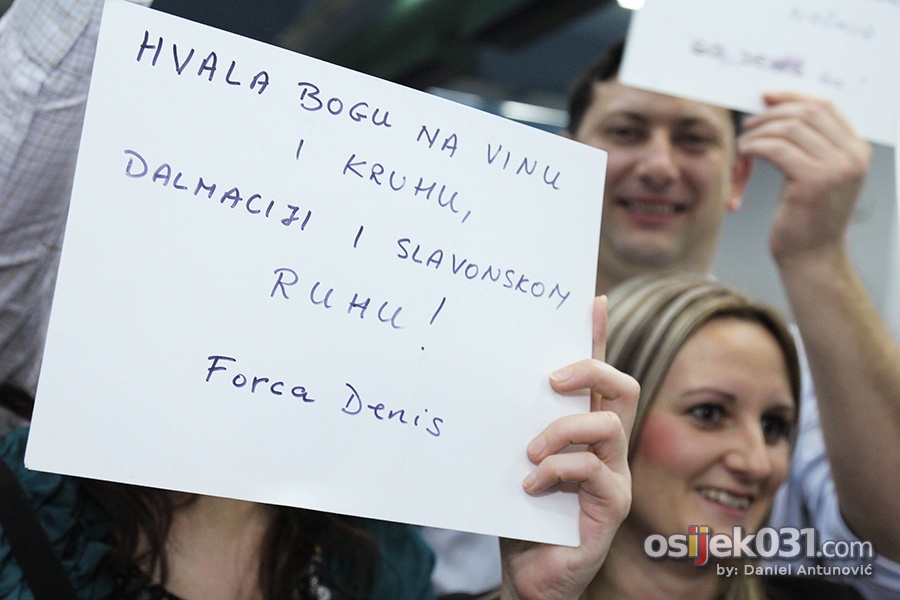 HVALA BOGU NA VINU
I KRUHU,
DALMACIJI I SLAVONSKOM
RUHU!
Forca Denis
osijek031.com
by: Daniel Antunović